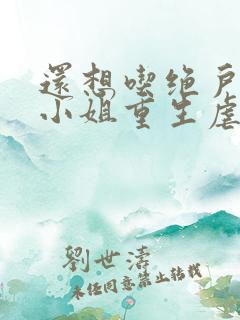 還想喫绝戶
小姐重生虐
劉世濤
未经同意禁止转载